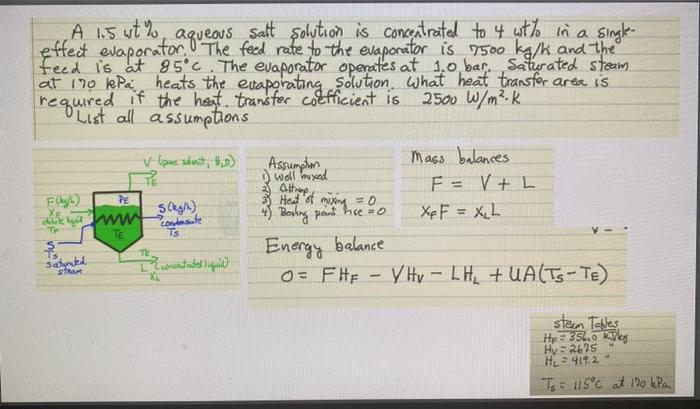 A 1.5 wt%, aqueous salt solution is concentrated to 4 wt% in a single-
effect evaporator. The feed rate to the evaporator is 7500 kg/h and the
feed is at 85°C. The evaporator operates at 1.0 bar. Saturated steam
at 170 kPa heats the evaporating solution. What heat transfer area is
required if the heat transfer coefficient is 2500 W/m²·K
List all assumptions
V (pure solvent, H₂O)
TE
F (kg/h)
XF
dilute liquid
TF
PE
TE
S (kg/h)
condensate
TS
S
TS
saturated
steam
TE
L (concentrated liquid)
XL
Assumption
1) Well mixed
2)
3) Heat of mixing = 0
4) Boiling point rise = 0
Mass balances
F = V + L
XFF = XLL
Energy balance
0 = FHF - VHV - LHL + UA(TS - TE)
Steam Tables
HF = 356.0 kJ/kg
HV = 2675 "
HL = 419.2 "
TS = 115°C at 170 kPa